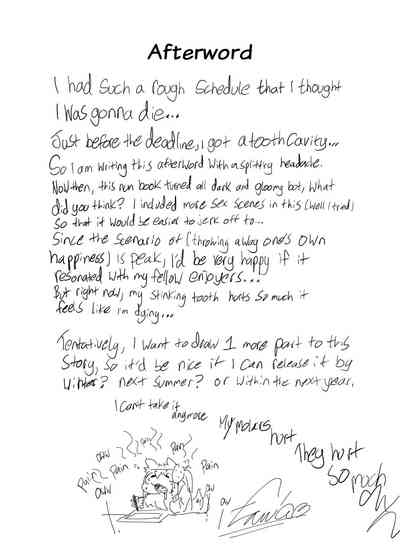 Afterword
I had such a rough schedule that I thought
I was gonna die...
Just before the deadline, I got a tooth cavity...
So I am writing this afterword with a splittry headache.
Now then, this nun book turned all dark and gloomy but, what
did you think? I included more sex scenes in this (well I tried)
so that it would be easier to jerk off to...
Since the scenario of (throwing away one's own
happiness) is peak, I'd be very happy if it
resonated with my fellow enjoyers...
But right now, my stinking tooth hurts so much it
feels like I'm dying...
Tentatively, I want to draw 1 more part to this
story, so it'd be nice if I can release it by
winter? next summer? or within the next year.
I can't take it
anymore
My molars
hurt
They hurt
so much
oww
Pain
Pain
oww
oww
Pain
Pain
ow